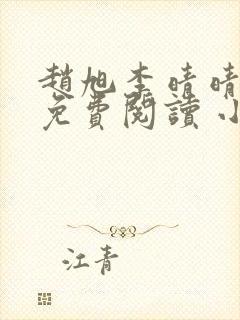 趙旭李晴晴
免費閱讀小
江青